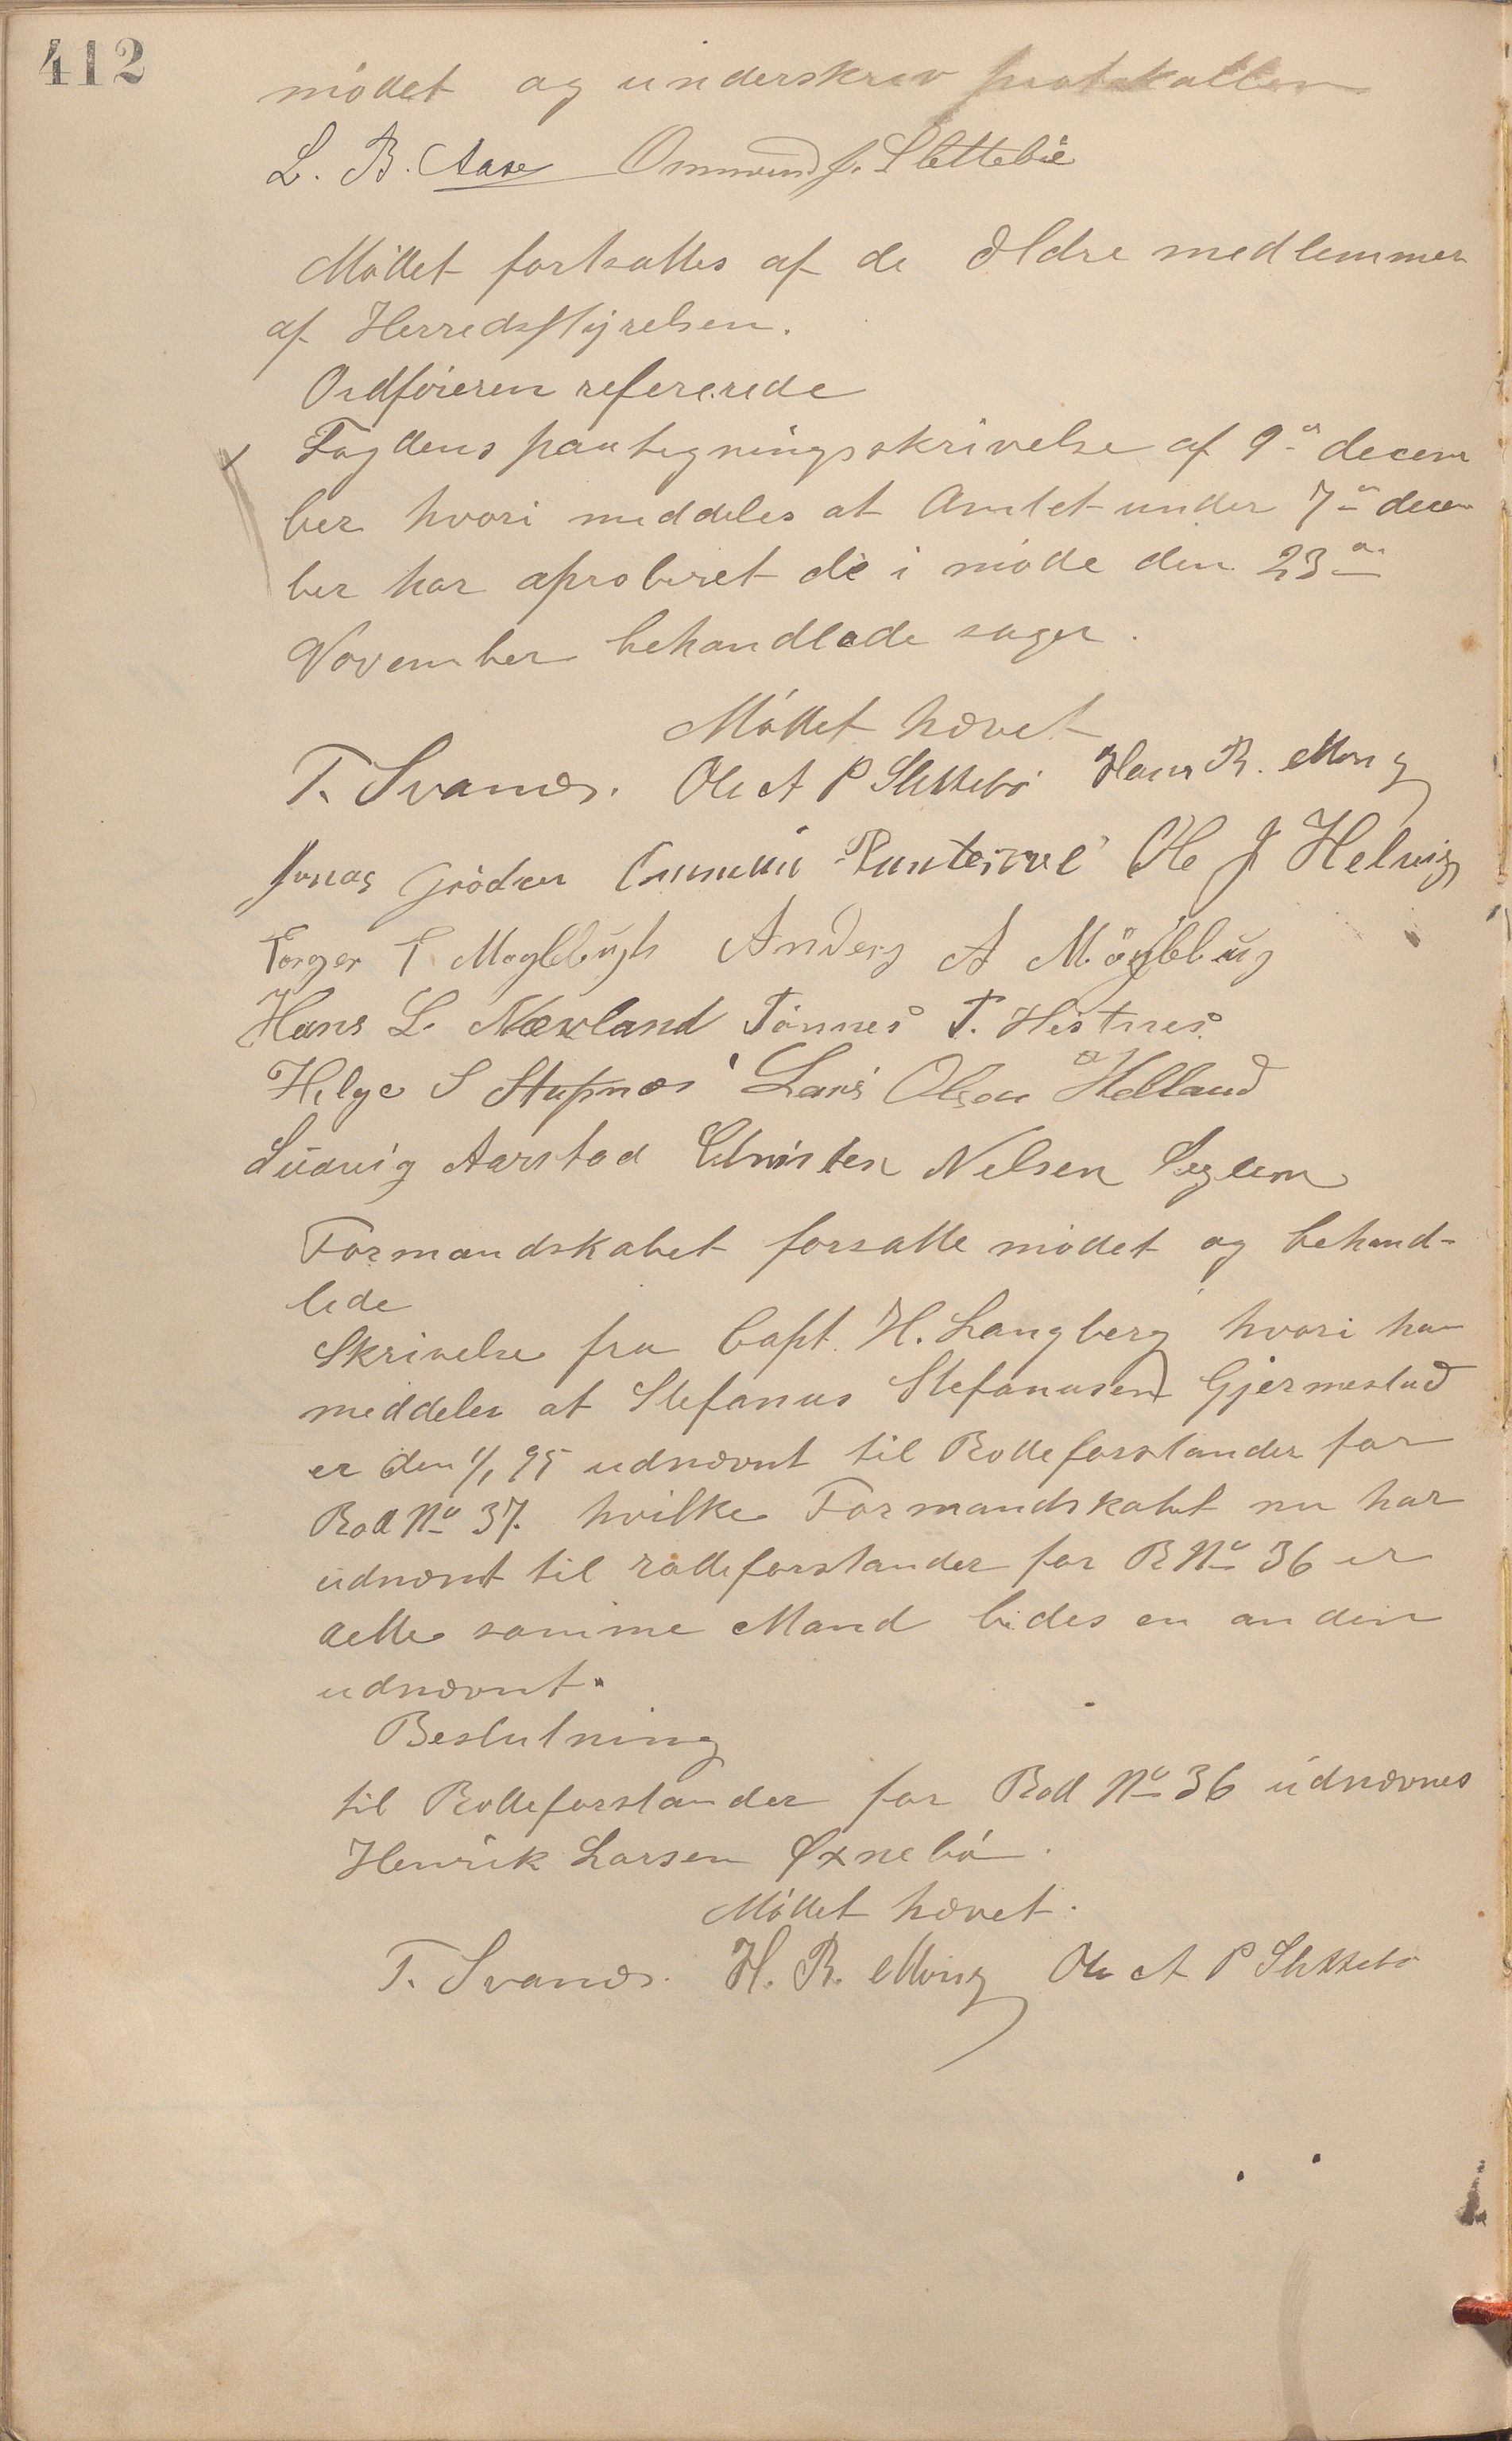 412
mödet og underskrev protokollen
L. B. Aase Ommund J. Slettebø
Mödet fortsattes af de ældre medlemmer
af Herredsstyrelsen.
Ordföreren refererede
Fogdens paategningsskrivelse af 9de decem
ber hvori meddeles at Amtet under 7de decem
ber har aproberet de i möde den 23de
November behandlede sager.
Mödet hævet
T. Svanæs. Ole A P Slettebö Hans R. Mong
Jonas Grödem Ommund Puntervol Ole J Helvig
Torger T Møglebugh Anders A Mögbbug
Hans L. Nævland Tönnes T. Hestnes
Helge S Stapnæs Lars Olson Helland
Ludvig Aarstad Christen Nelsen Seglem
Formandskabet forsatte mödet og behand-
lede
Skrivelse fra Capt. H. Langberg hvori han
meddeler at Stefanus Stefanusen Gjermestad
er den 1/1 95 udnævnt til Rodeforstander for
Rod No 37. hvilke Formandskabet nu har
udnævnt til rodeforstander for R No 36 er
dette samme Mand bedes en anden
udnævnt.
Beslutning
til Rodeforstander for Rod No 36 udnævnes
Henrik Larsen Øxnebö.
Mödet hævet.
T. Svanæs. H. R. Mong Ole A P Slettebö